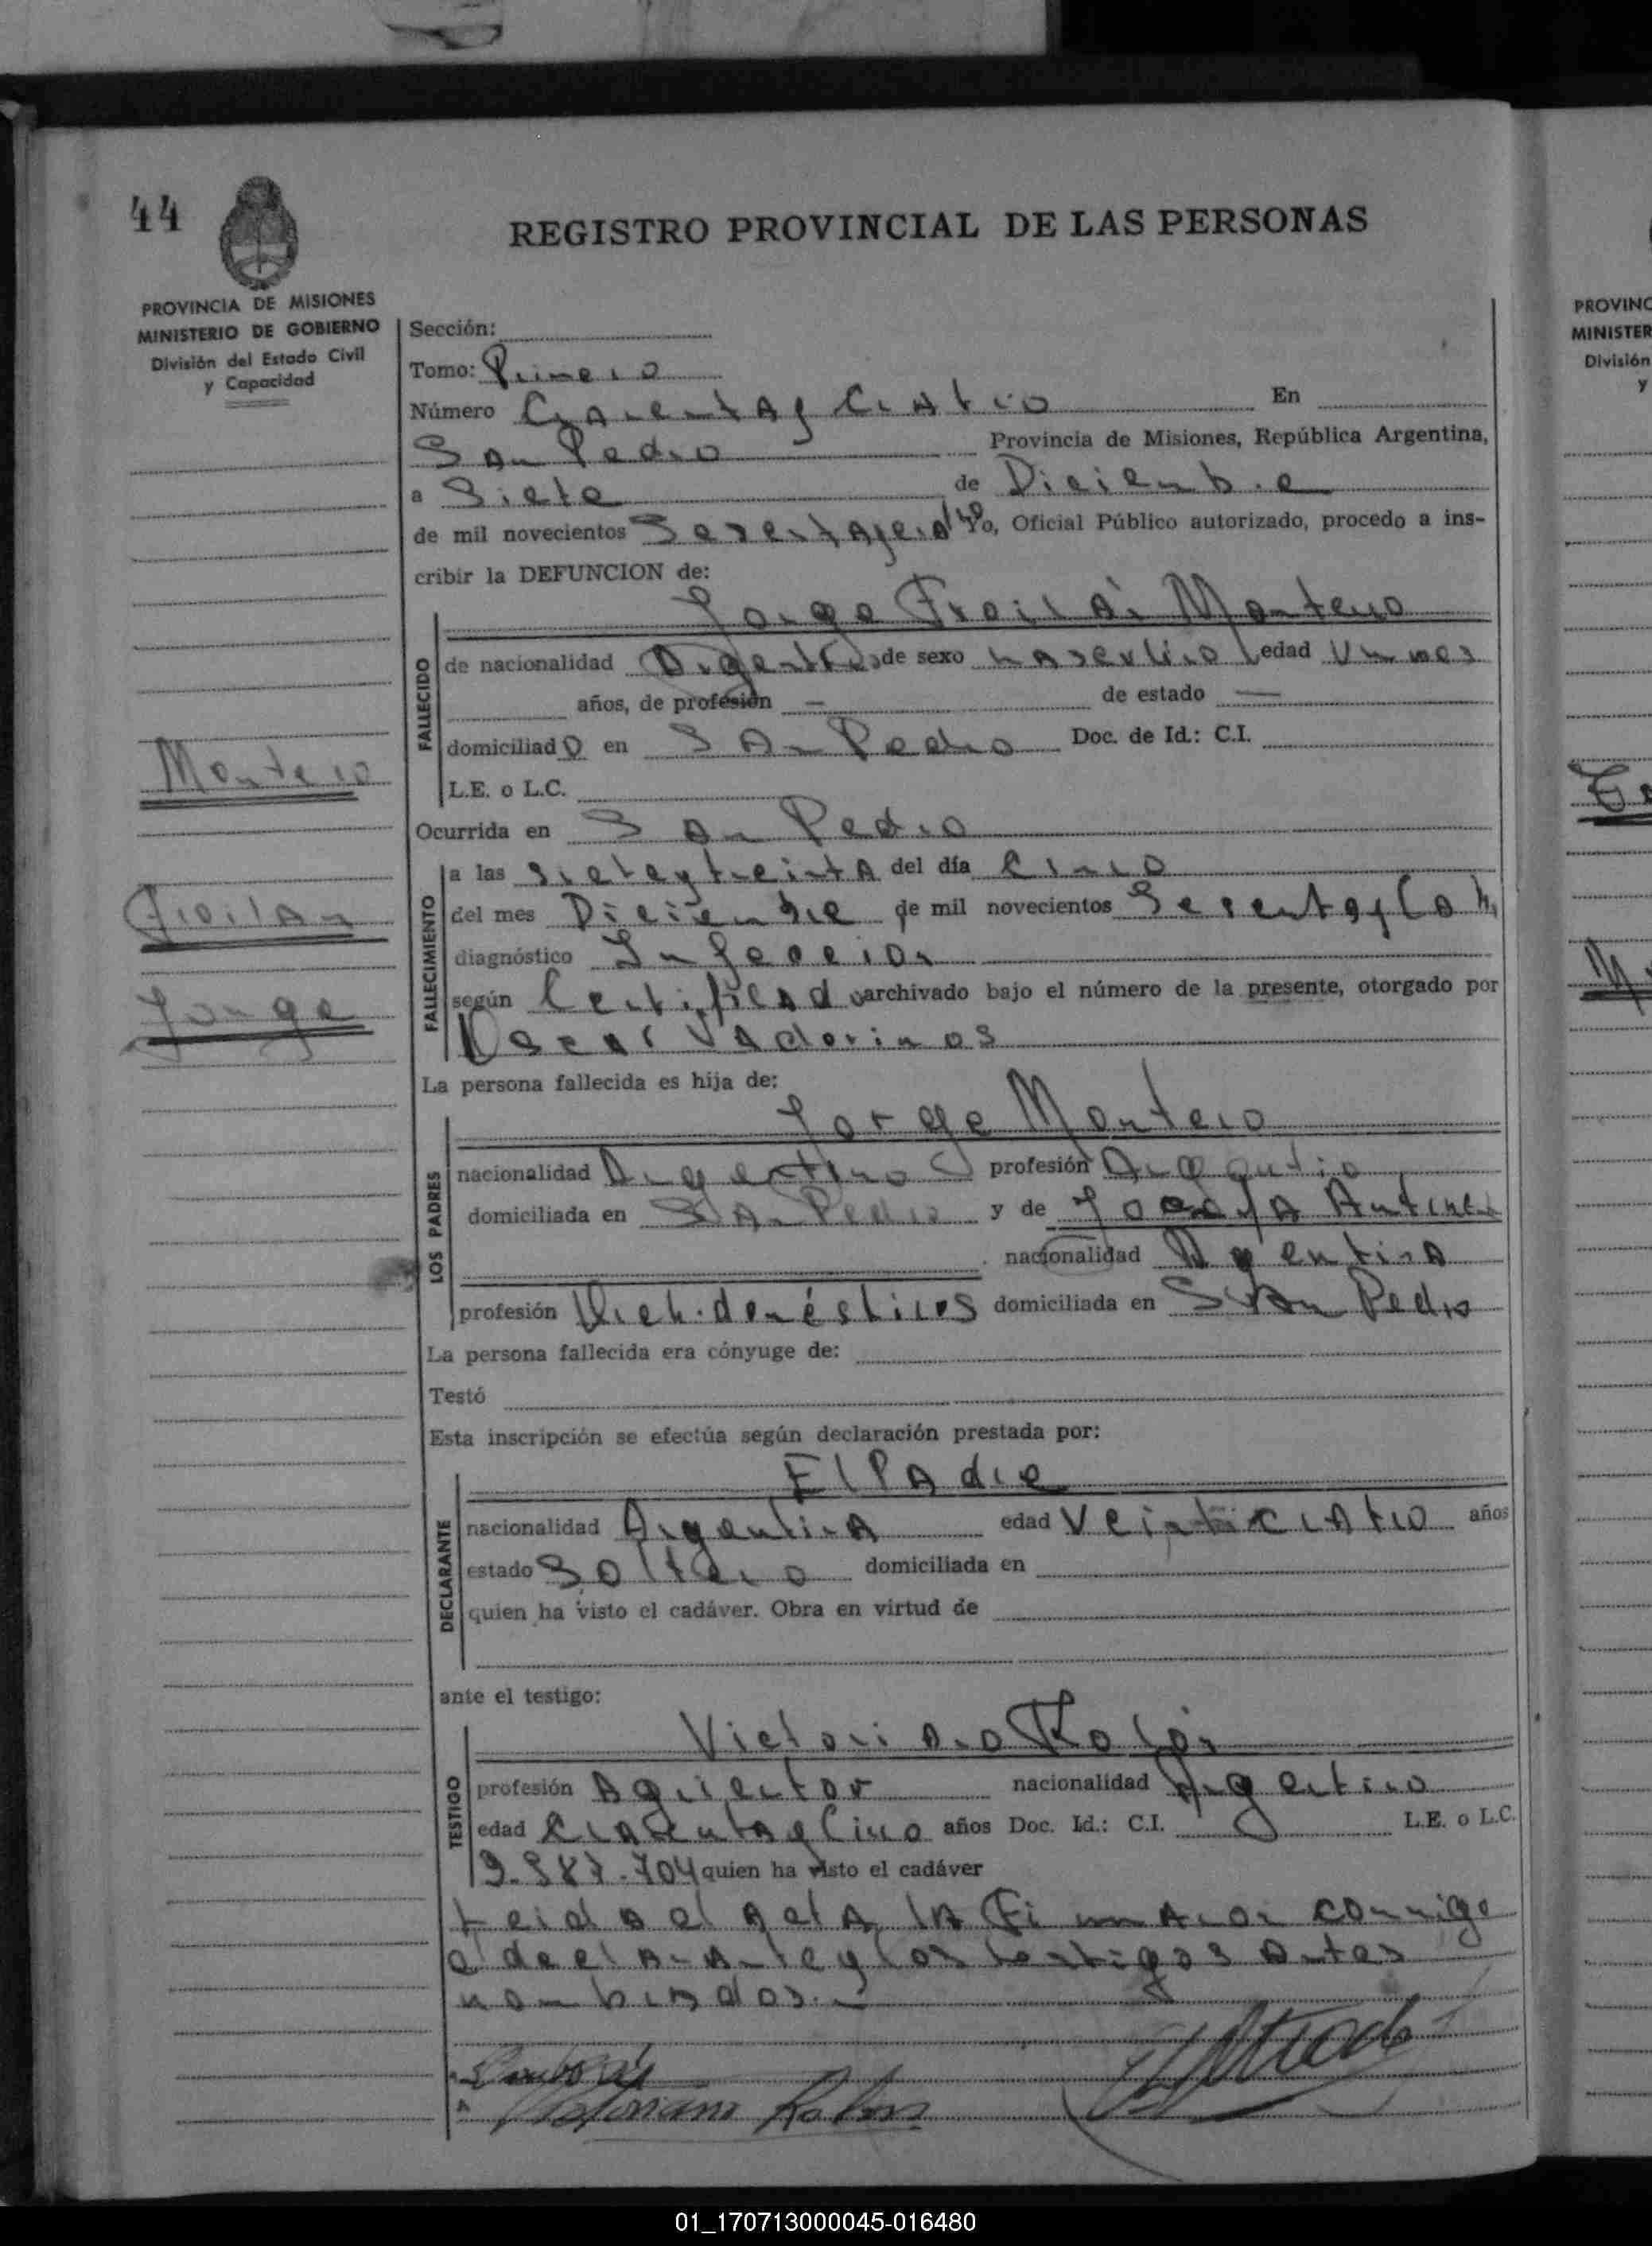 44
REGISTRO PROVINCIAL DE LAS PERSONAS
PROVINCIA DE MISIONES
MINISTERIO DE GOBIERNO
División del Estado Civil
y Capacidad
Sección:
Tomo: Primero
Número Cuarenta y Cuatro En
San Pedro Provincia de Misiones, República Argentina,
a Siete de Diciembre
de mil novecientos Yo, Oficial Público autorizado, procedo a ins-
cribir la DEFUNCION de:
Jorge Froilán Montero
FALLECIDO
de nacionalidad Argentino de sexo masculino edad Un mes
años, de profesión — de estado —
domiciliado en San Pedro Doc. de Id.: C.I.
L.E. o L.C.
Montero
Ocurrida en San Pedro
FALLECIMIENTO
a las siete y treinta del día Cinco
del mes Diciembre de mil novecientos
Froilan
diagnóstico Infeccion
según Certificado archivado bajo el número de la presente, otorgado por
Jorge
Oscar
La persona fallecida es hija de:
Jorge Montero
LOS PADRES
nacionalidad Argentino profesión
domiciliada en San Pedro y de
nacionalidad Argentina
profesión Queh. domésticos domiciliada en San Pedro
La persona fallecida era cónyuge de:
Testó
Esta inscripción se efectúa según declaración prestada por:
El Padre
DECLARANTE
nacionalidad Argentina edad Veinticuatro años
estado Soltero domiciliada en
quien ha visto el cadáver. Obra en virtud de
ante el testigo:
Victoriano
TESTIGO
profesión Agricultor nacionalidad Argentino
edad Cuarenta y Cinco años Doc. Id.: C.I. L.E. o L.C.
quien ha visto el cadáver
Leida el acta la Firmaron conmigo
el declarante y los testigos antes
nombrados.—
Victoriano
PROVINC
MINISTER
División
y
01_170713000045-016480